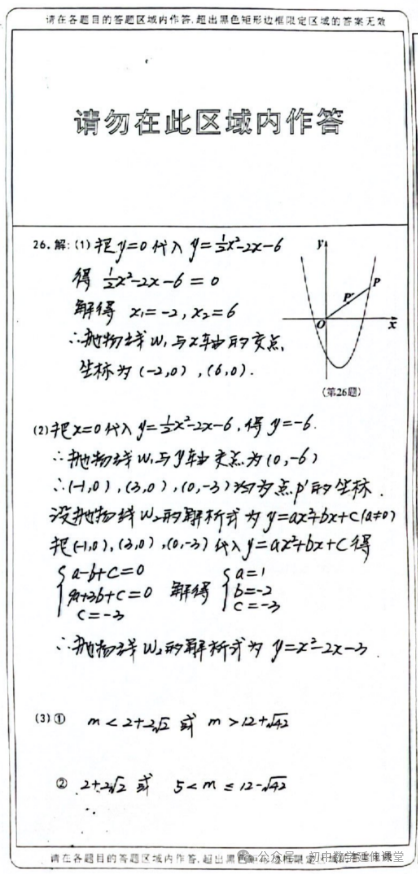 请在各题目的答题区域内作答,超出黑色矩形边框限定区域的答案无效
请勿在此区域内作答
26.解:(1)把y=0代入y=½x²-2x-6
得 ½x²-2x-6=0
解得 x₁=-2,x₂=6
∴抛物线W₁与x轴的交点
坐标为(-2,0),(6,0).
y
P
P'
O
x
(第26题)
(2)把x=0代入y=½x²-2x-6,得y=-6.
∴抛物线W₁与y轴交点为(0,-6)
∴(-1,0),(3,0),(0,-3)均为点P'的坐标.
设抛物线W₂的解析式为y=ax²+bx+c(a≠0)
把(-1,0),(3,0),(0,-3)代入y=ax²+bx+c得
{a-b+c=0 {a=1
9a+3b+c=0 解得 b=-2
c=-3 c=-3
∴抛物线W₂的解析式为 y=x²-2x-3
(3)① m<2+2√2 或 m>12+√42
② 2+2√2 或 5<m≤12-√42
公众号·初中数学延伸课堂
请在各题目的答题区域内作答,超出黑色矩形边框限定区域的答案无效